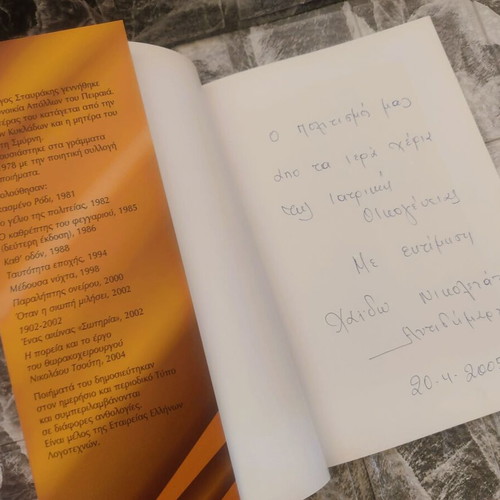 γος Σταυράκης γεννήθηκε
νοικία Απόλλων του Πειραιά.
τέρας του κατάγεται από την
ν Κυκλάδων και η μητέρα του
τη Σμύρνη.
υσιάστηκε στα γράμματα
1978 με την ποιητική συλλογή
ποιήματα.
ολούθησαν:
ασμένο Ρόδι, 1981
ο γέλιο της πολιτείας, 1982
Ο καθρέπτης του φεγγαριού, 1985
(δεύτερη έκδοση), 1986
Καθ' οδόν, 1988
Ταυτότητα εποχής, 1994
Μέδουσα νύχτα, 1998
Παραλήπτης ονείρου, 2000
Όταν η σιωπή μιλήσει, 2002
1902-2002
Ένας αιώνας «Σωτηρία», 2002
Η πορεία και το έργο
του θωρακοχειρουργού
Νικολάου Τσούτη, 2004
Ποιήματά του δημοσιεύτηκαν
στον ημερήσιο και περιοδικό Τύπο
και συμπεριλαμβάνονται
σε διάφορες ανθολογίες.
Είναι μέλος της Εταιρείας Ελλήνων
Λογοτεχνών.
Ο πολιτισμό μας
απο τα ιερά χέρια
της Ιατρική
Οικογένειας
Με εκτίμηση
Χάιδω Νικολ
20-4-2005